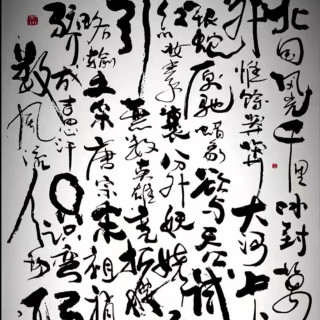 北国风光千里冰封万
外惟馀莽莽大河上下
银蛇原驰蜡象欲与天公试
红妆素裹分外妖娆
引無数英雄竞折腰
略输文采唐宗宋祖稍
骄成吉思汗只识弯弓
数风流人物